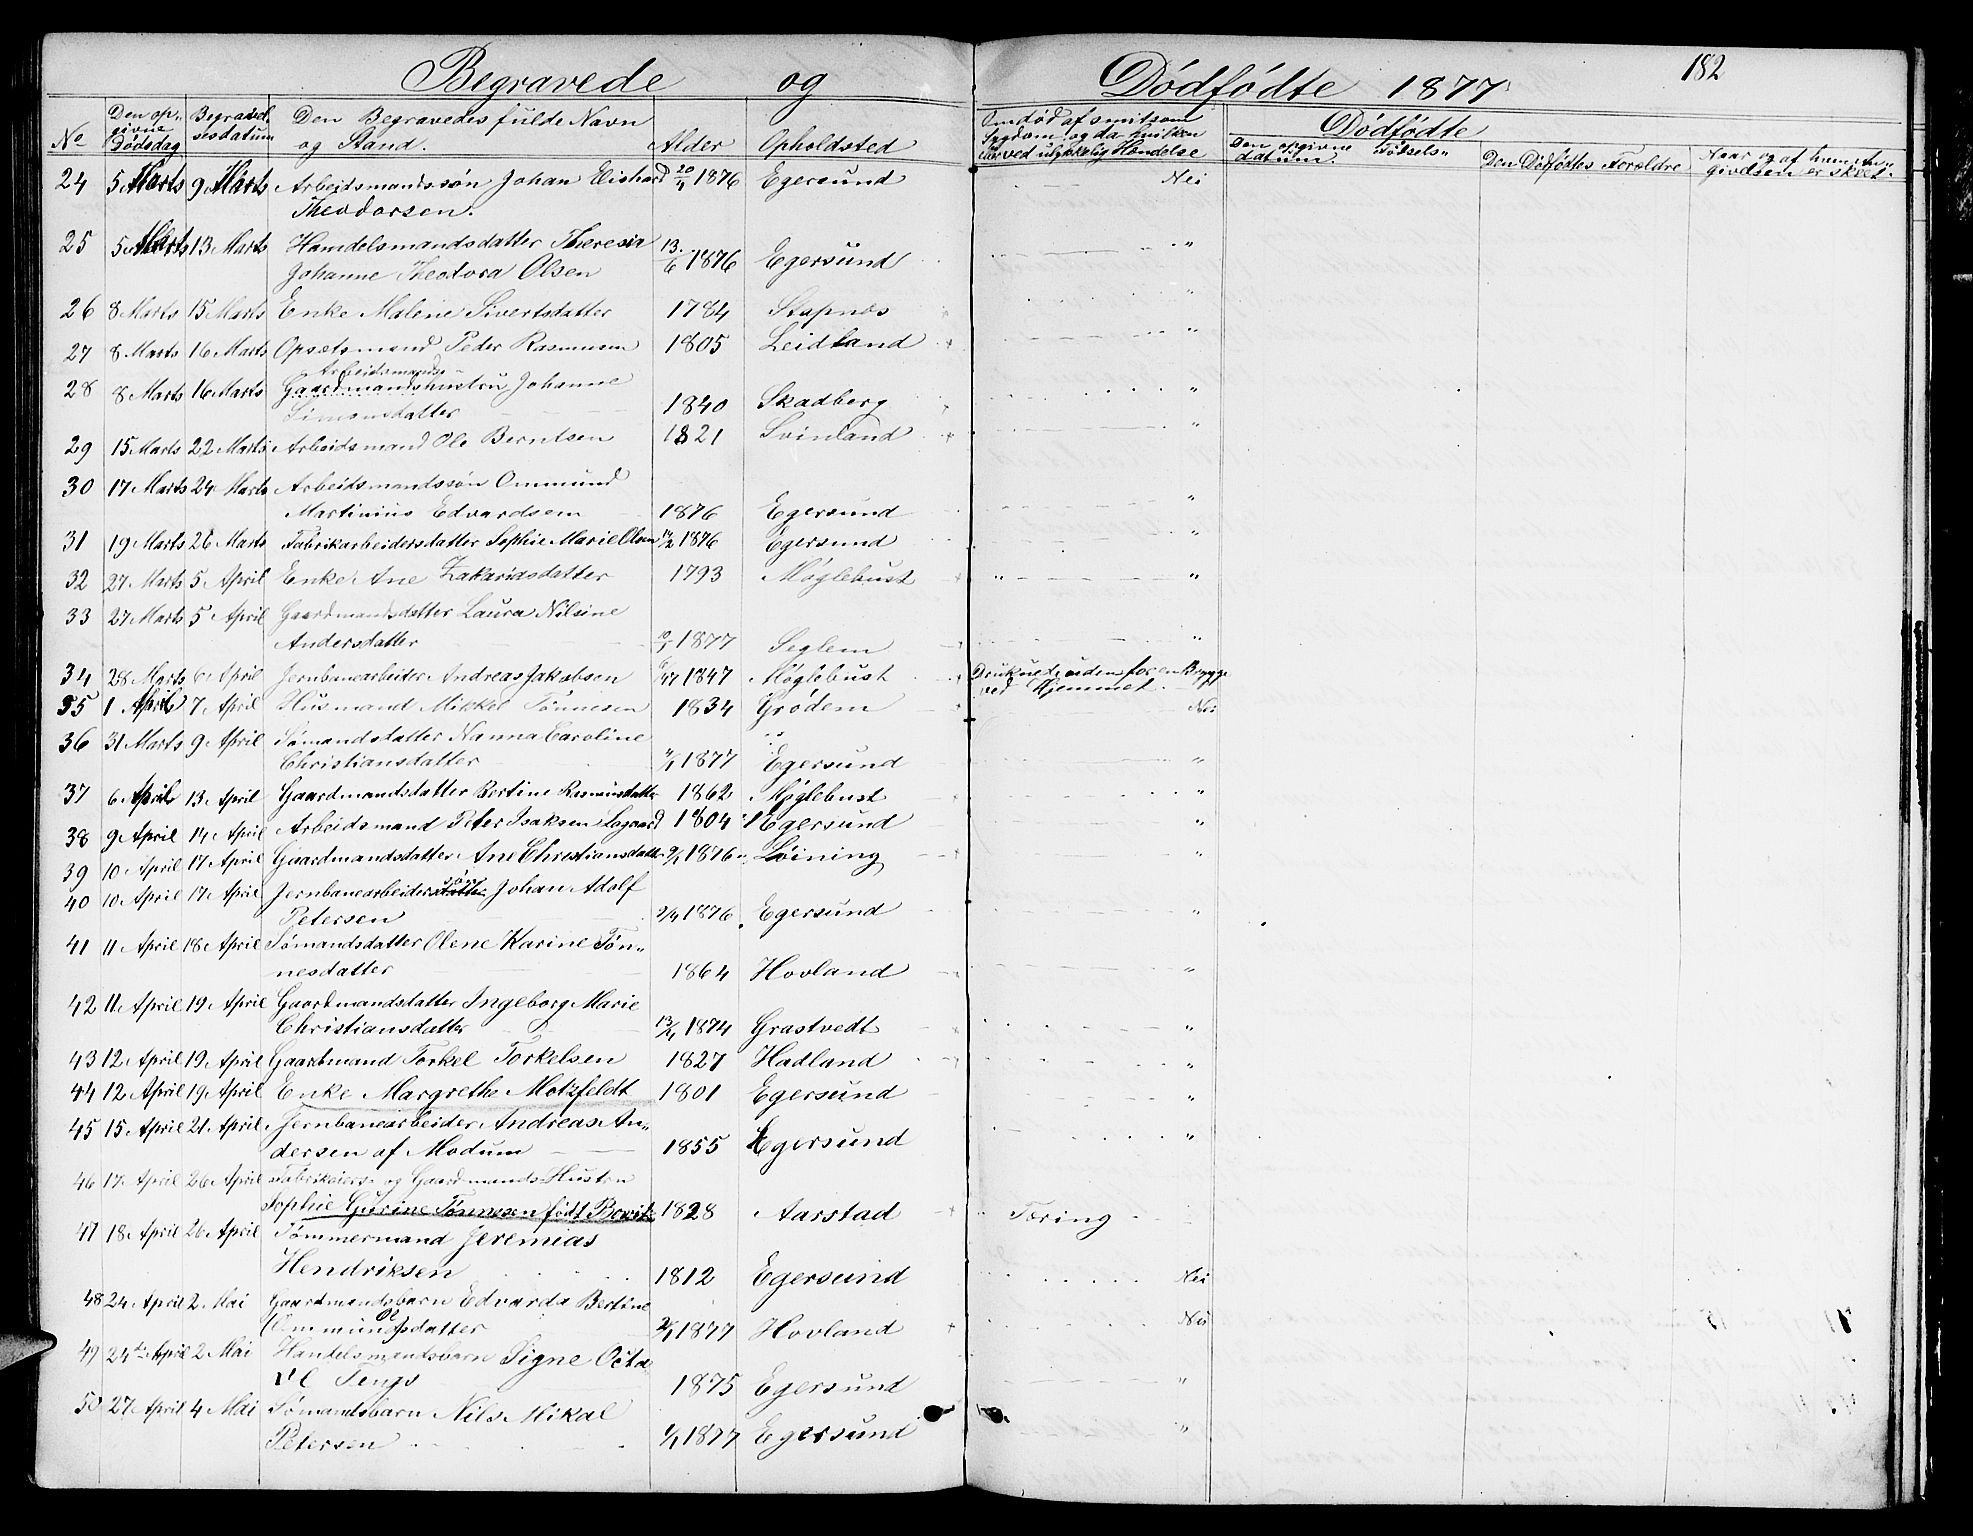 182
Begravede og Dödfödte 1877
No
Den op-
givne
Dödsdag
Begravel-
sesdatum
Den Begravedes fulde Navn
og Stand.
Alder
Opholdsted
Om död af smitsom
Sygdom og da hvilken
ved ulykkelig Hændelse
Dödfödte
Den opgivne Födsels-
datum.
Den Dödfödtes Forældre
24 5 Marts 9 Marts Arbeidsmandssön Johan 20/4 1876 Egersund Nei
Theodorsen.
25 5 Marts 13 Marts Handelsmandsdatter Theresia
Johanne Theodora Olsen 13/6 1876 Egersund "
26 8 Marts 15 Marts Enke Malene Sivertsdatter 1784 Stapnes "
27 8 Marts 16 Marts Opsætsmand Peder Rasmusen 1805 Leidland "
Arbeidsmands-
28 8 Marts 16 Marts Gaardmandshustru Johanne
Simonsdatter 1840 Skadberg "
29 15 Marts 22 Marts Arbeidsmand Ole Berntsen 1821 Svinland "
30 17 Marts 24 Marts Arbeidsmandssön Ommund
Martinius Edvardsen 1876 Egersund "
31 19 Marts 26 Marts Fabrikarbeidersdatter Sophie Marie Olsen 1876 Egersund "
32 27 Marts 5 April Enke Ane Zakariasdatter 1793 Møglebust " "
33 27 Marts 5 April Gaardmandsdatter Laura Nilsine
Andersdatter 1877 Seglem "
34 28 Marts 6 April Jernbanearbeider Andreas Jakobsen 1847 Møglebust Druknet, uden for en Brygge
ved Hjemmet.
35 1 April 7 April Husmand Mikkel Tönnesen 1834 Grödem Nei
36 31 Marts 9 April Sömandsdatter Nanna Caroline
Christiansdatter 1877 Egersund "
37 6 April 13 April Gaardmandsdatter Bertine Rasmusdatter 1862 Møglebust "
38 9 April 14 April Arbeidsmand Peter Isaksen Lagaard 1804 Egersund "
39 10 April 17 April Gaardmandsdatter Ane Christiansdatter 9/1 1876 Löining
sön
40 10 April 17 April Jernbanearbeidersdatter Johan Adolf
Petersen 2/4 1876 Egersund "
41 11 April 18 April Sömandsdatter Olene Karine Tön-
nesdatter 1864 Hovland "
42 11 April 19 April Gaardmandsdatter Ingeborg Marie
Christiansdatter 13/4 1874 Grastvedt "
43 12 April 19 April Gaardmand Torkel Torkelsen 1827 Hadland "
44 12 April 19 April Enke Margrethe Motzfeldt 1801 Egersund "
45 15 April 21 April Jernbanearbeider Andreas An-
dersen af Modum 1855 Egersund "
46 17 April 26 April Fabrikeiers- og Gaardmands Hustru
Sophie Gurine Tönnesen födt 1828 Aarstad Tæring
47 18 April 26 April Tömmermand Jeremias
Hendriksen 1812 Egersund Nei
48 24 April 2 Mai Gaardmandsbarn Edvarda Bertine
Ommundsdatter 1877 Hovland Nei
49 24de April 2 Mai Handelsmandsbarn Signe Octa
Tengs 1875 Egersund "
50 27 April 4 Mai Sömandsbarn Nils Mikal
Petersen 1877 Egersund "